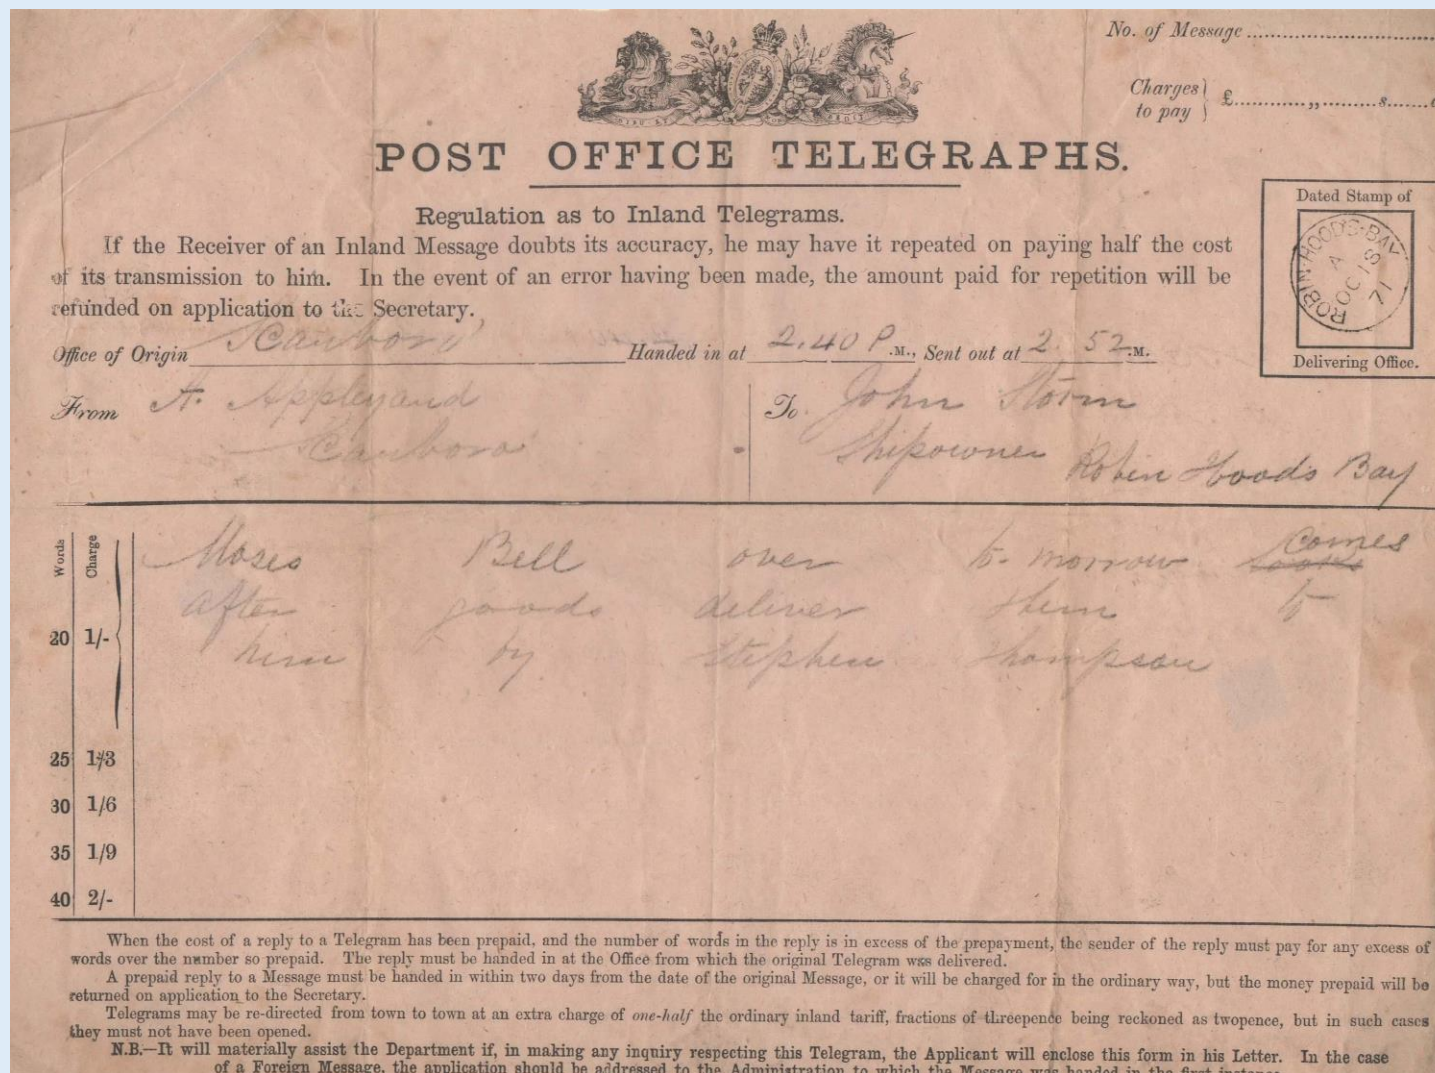 No. of Message
Charges to pay } £ ,, s.
POST OFFICE TELEGRAPHS.
Dated Stamp of
ROBIN-HOODS-BAY
A
OC 18
71
Delivering Office.
Regulation as to Inland Telegrams.
If the Receiver of an Inland Message doubts its accuracy, he may have it repeated on paying half the cost
of its transmission to him. In the event of an error having been made, the amount paid for repetition will be
refunded on application to the Secretary.
Office of Origin Scarboro' Handed in at 2.40 P .M., Sent out at 2.52 .M.
From A. Appleyard To John Storm
Scarboro' Shipowner Robin Hoods Bay
Words Charge
Moses Bell over to-morrow comes
after goods deliver them to
20 1/- him by Stephen Thompson
25 1/3
30 1/6
35 1/9
40 2/-
When the cost of a reply to a Telegram has been prepaid, and the number of words in the reply is in excess of the prepayment, the sender of the reply must pay for any excess of
words over the number so prepaid. The reply must be handed in at the Office from which the original Telegram was delivered.
A prepaid reply to a Message must be handed in within two days from the date of the original Message, or it will be charged for in the ordinary way, but the money prepaid will be
returned on application to the Secretary.
Telegrams may be re-directed from town to town at an extra charge of one-half the ordinary inland tariff, fractions of threepence being reckoned as twopence, but in such cases
they must not have been opened.
N.B.—It will materially assist the Department if, in making any inquiry respecting this Telegram, the Applicant will enclose this form in his Letter. In the case
of a Foreign Message, the application should be addressed to the Administration to which the Message was handed in the first instance.